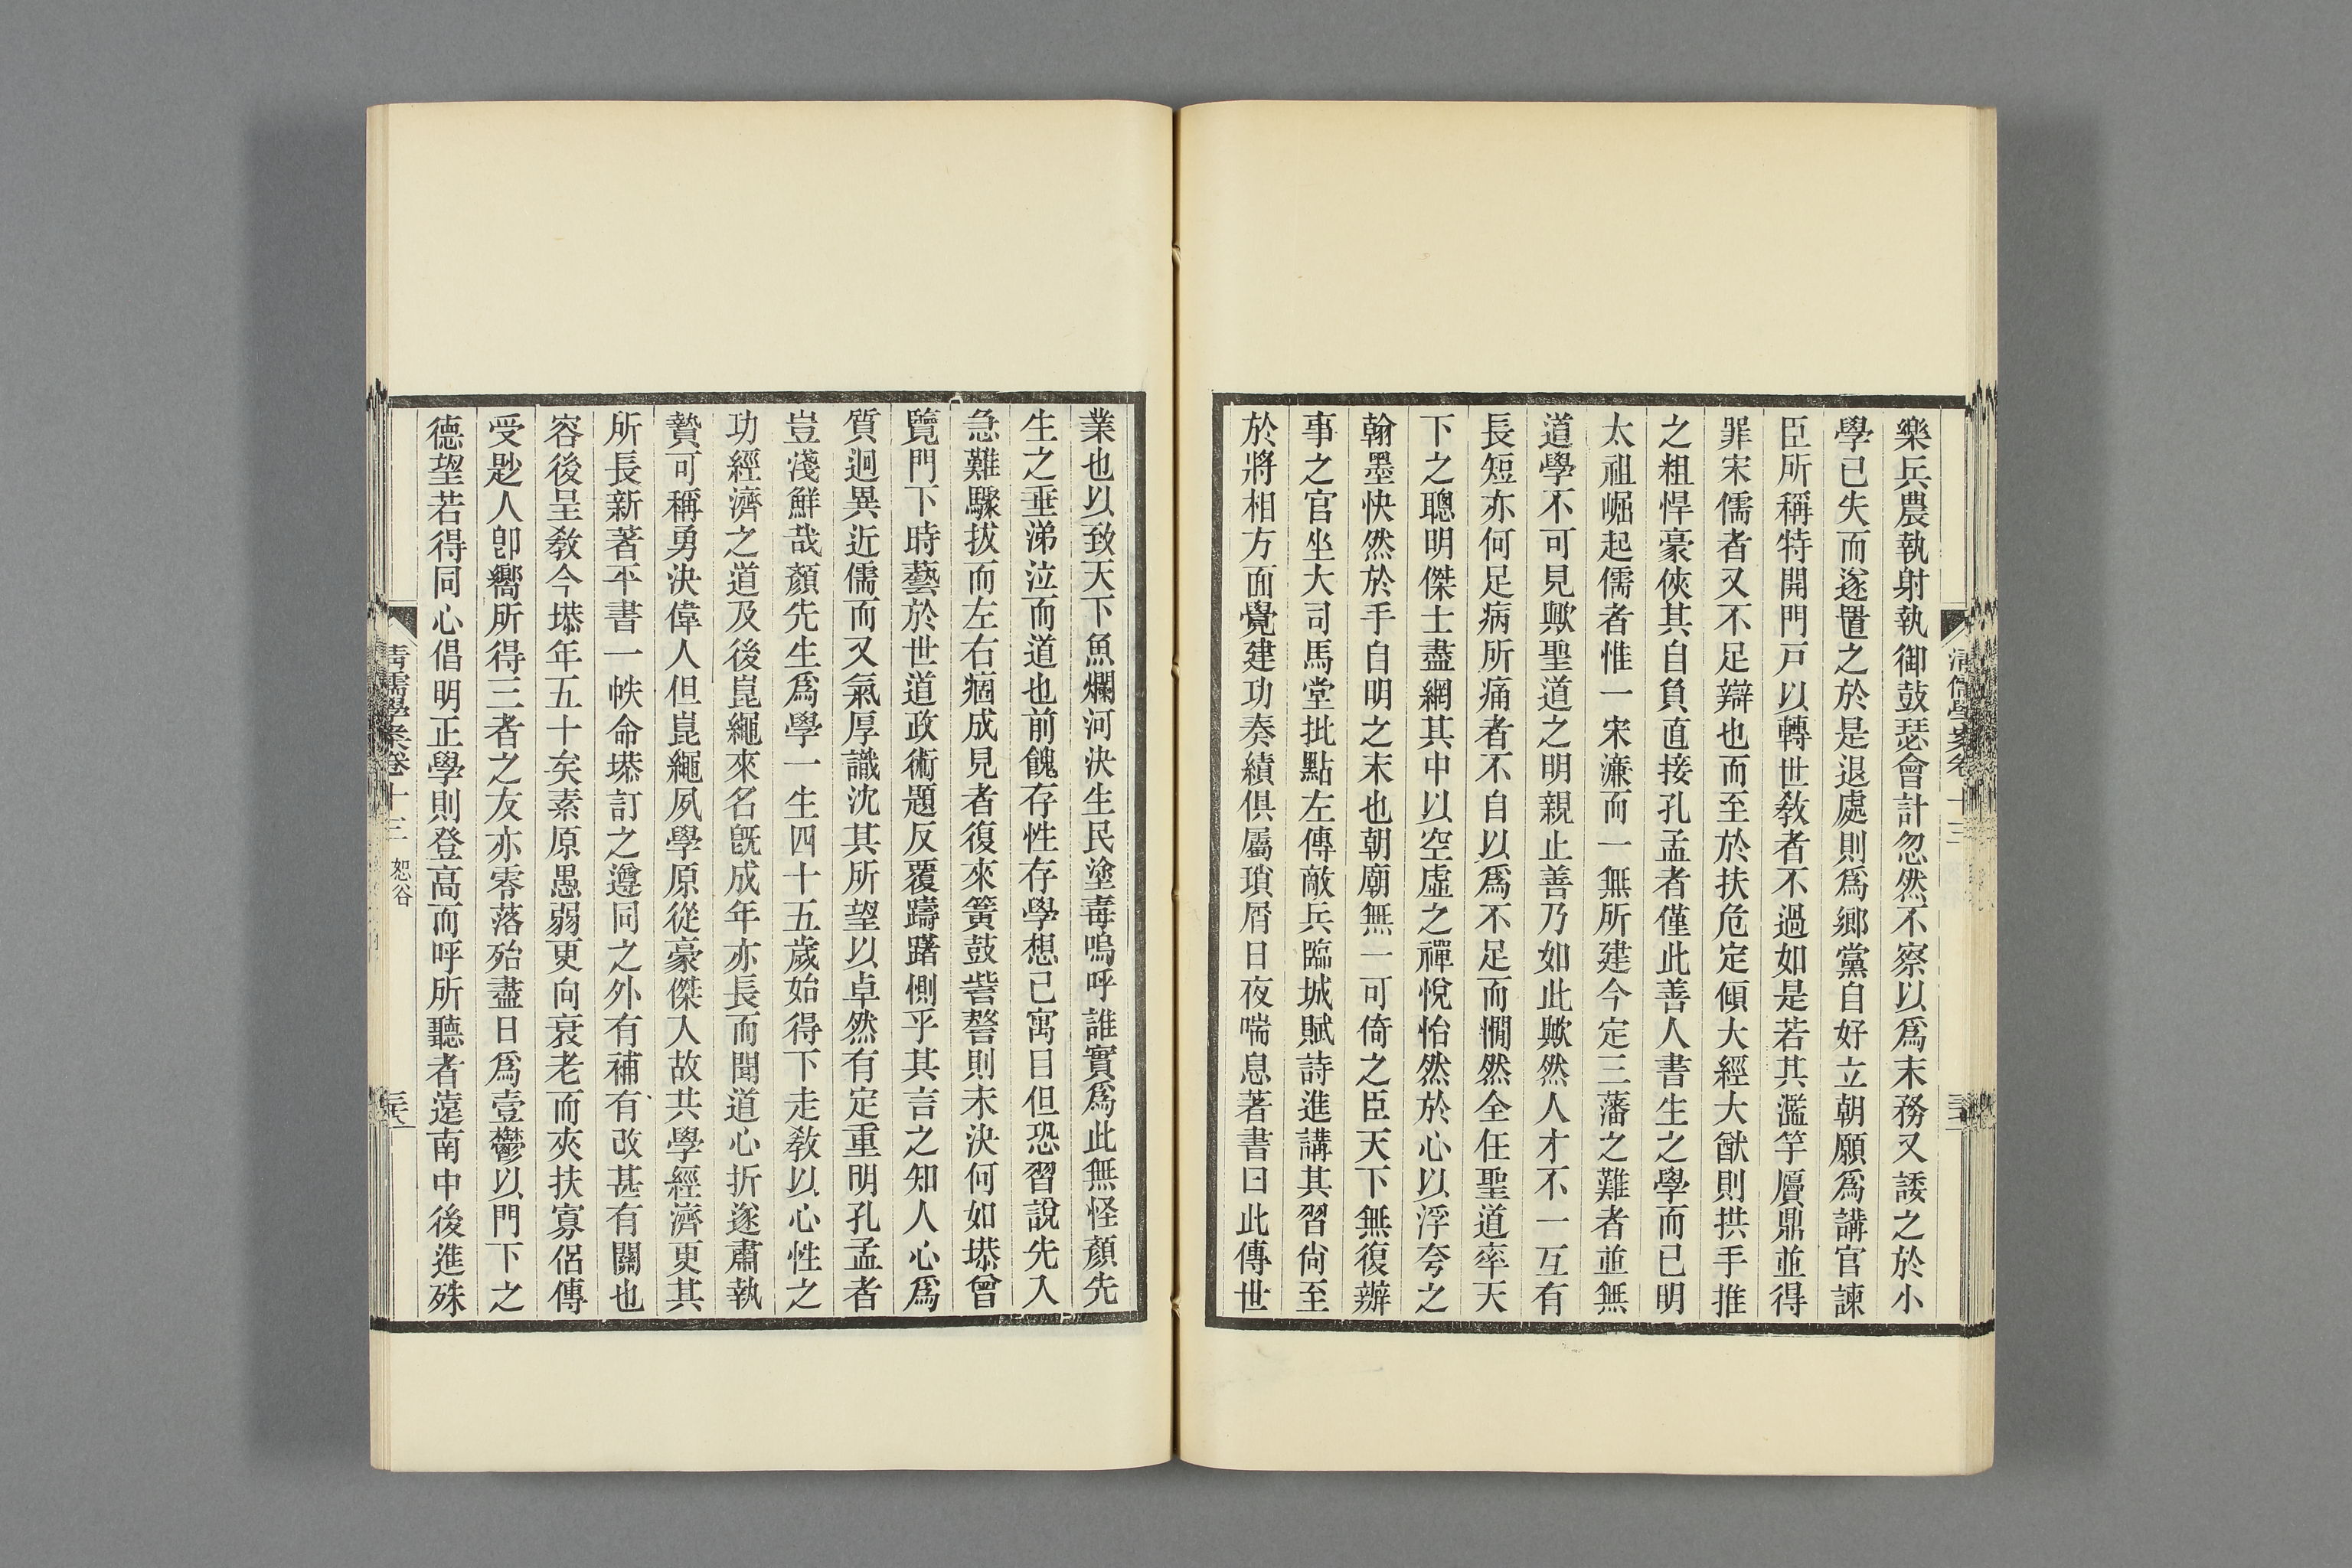 樂兵農執射執御鼓瑟會計忽然不察以爲末務又諉之於小
學已失而遂置之於是退處則爲鄉黨自好立朝願爲講官諫
臣所稱特開門戸以轉世敎者不過如是若其濫竽贋鼎並得
罪宋儒者又不足辯也而至於扶危定傾大經大猷則拱手推
之粗悍豪俠其自負直接孔孟者僅此善人書生之學而已明
太祖崛起儒者惟一宋濂而一無所建今定三藩之難者並無
道學不可見歟聖道之明親止善乃如此歟然人才不一互有
長短亦何足病所痛者不自以爲不足而憪然全任聖道率天
下之聰明傑士盡網其中以空虛之禪悅怡然於心以浮夸之
翰墨快然於手自明之末也朝廟無一可倚之臣天下無復辦
事之官坐大司馬堂批點左傳敵兵臨城賦詩進講其習尙至
於將相方面覺建功奏績俱屬瑣屑日夜喘息著書曰此傳世
清儒學案卷十三
業也以致天下魚爛河決生民塗毒嗚呼誰實爲此無怪顏先
生之垂涕泣而道也前餽存性存學想已寓目但恐習說先入
急難驟拔而左右痼成見者復來簧鼓訾謷則未決何如塨曾
覽門下時藝於世道政術題反覆躊躇惻乎其言之知人心爲
質迥異近儒而又氣厚識沈其所望以卓然有定重明孔孟者
豈淺鮮哉顏先生爲學一生四十五歲始得下走敎以心性之
功經濟之道及後崑繩來名旣成年亦長而聞道心折遂肅執
贄可稱勇決偉人但崑繩夙學原從豪傑入故共學經濟更其
所長新著平書一帙命塨訂之遵同之外有補有改甚有關也
容後呈敎今塨年五十矣素原愚弱更向衰老而夾扶寡侶傳
受尟人卽嚮所得三者之友亦零落殆盡日爲壹鬱以門下之
德望若得同心倡明正學則登高而呼所聽者遠南中後進殊
清儒學案卷十三 恕谷